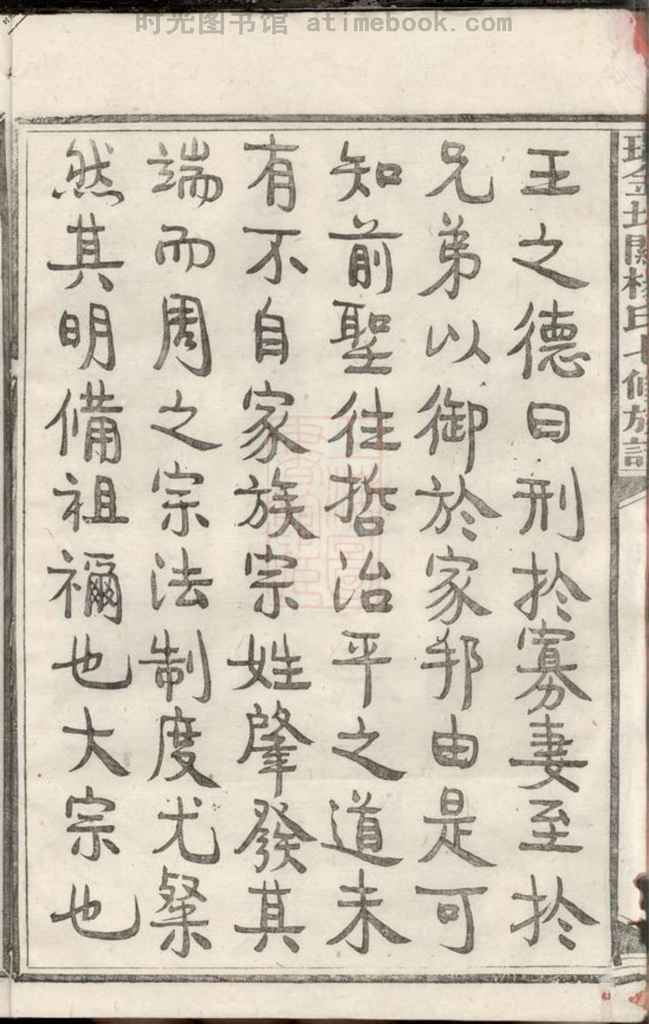 时光图书馆 atimebook.com
王之德曰刑於寡妻至於
兄弟以御於家邦由是可
知前聖往哲治平之道未
有不自家族宗姓肇發其
端而周之宗法制度尤粲
然其明備祖禰也大宗也